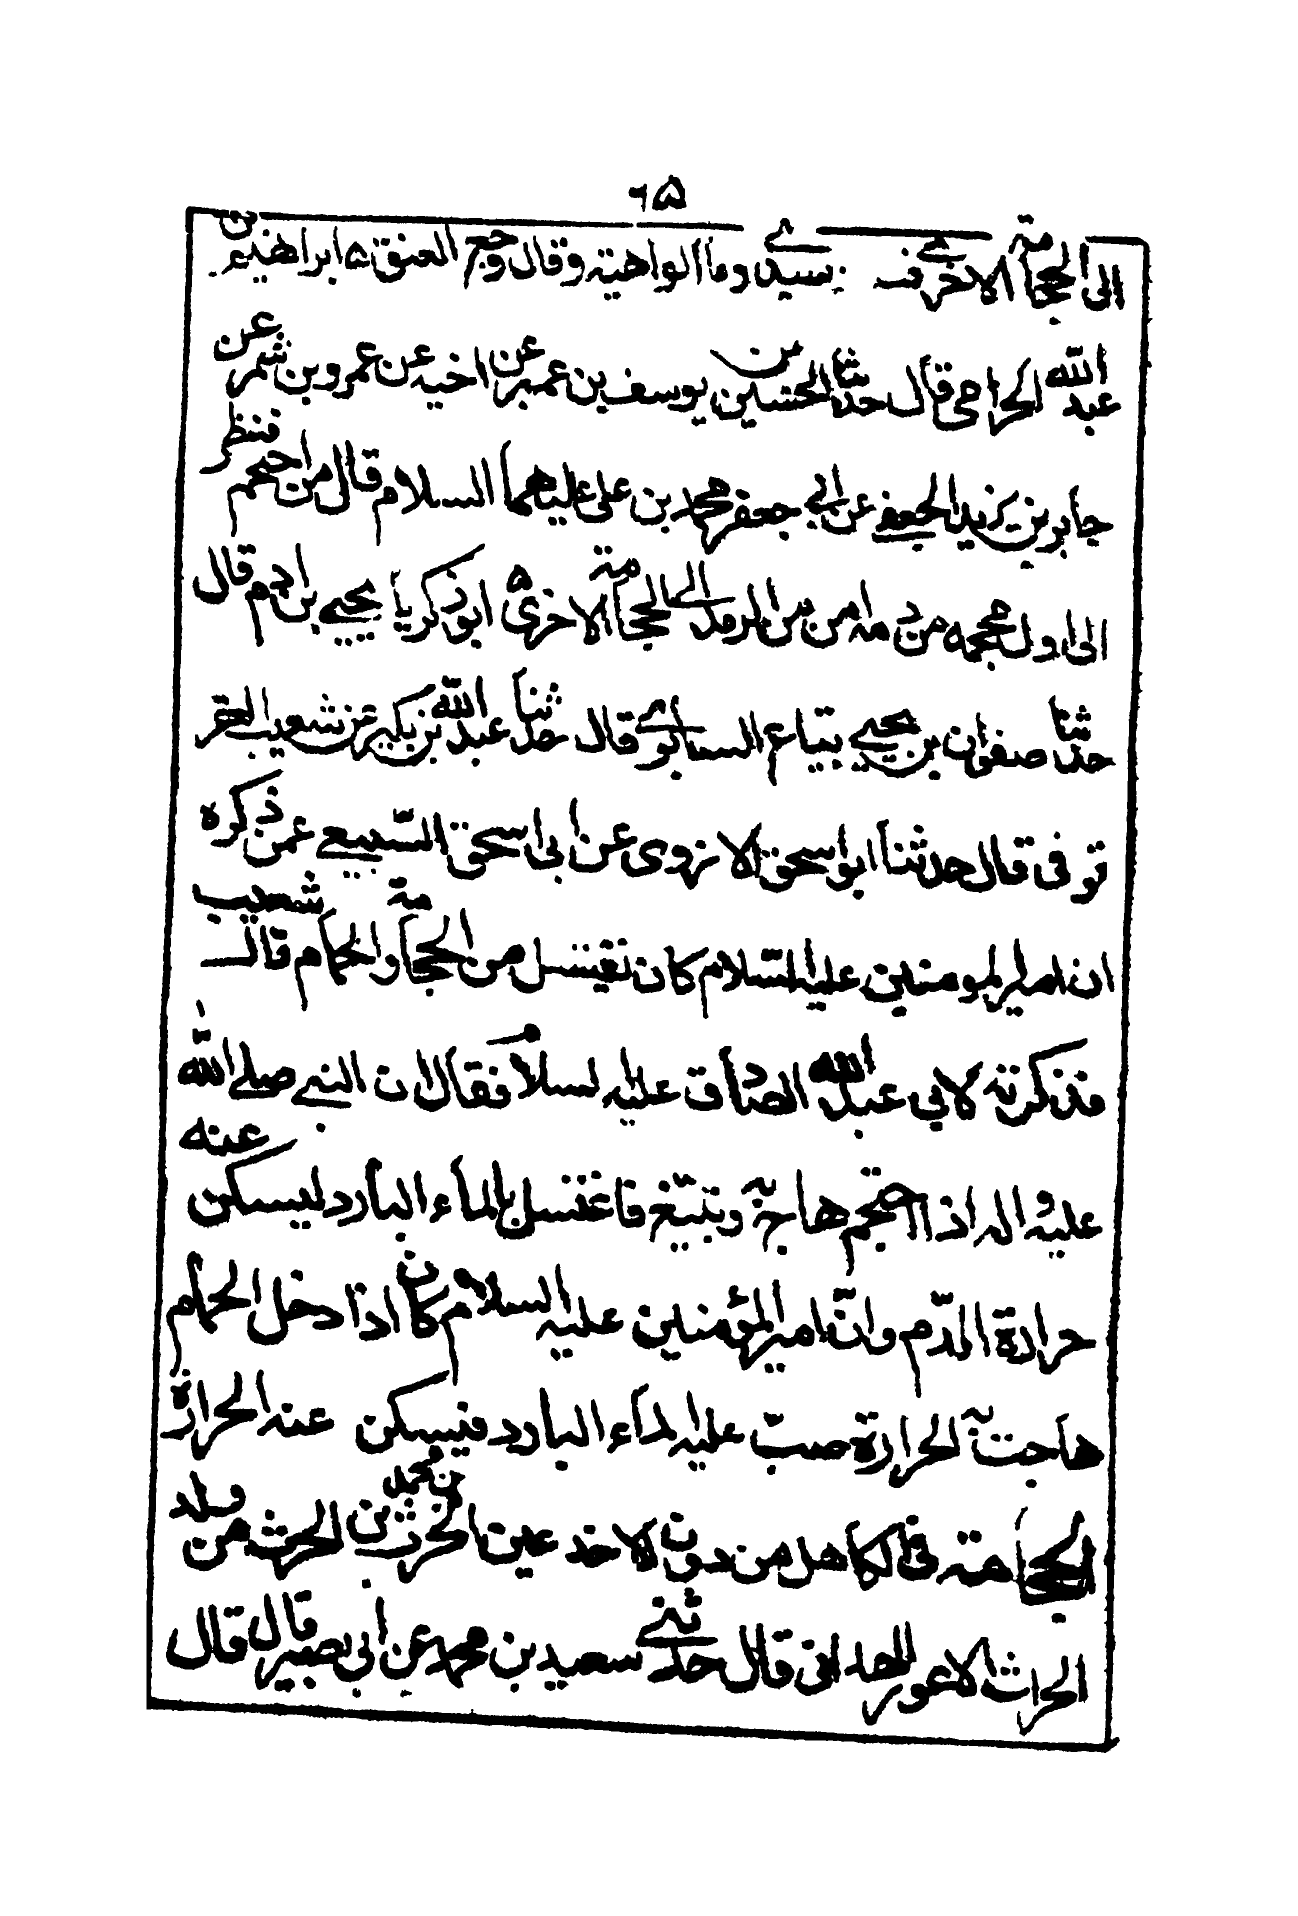 ٦٥
الى الحجامة الاخرى في سيدي وما الواهية وقال وجع العنق ۵ ابراهيم بن
عبد الله الجرامى قال حدثنا الحسين من يوسف بن عمير عن اخيه عن عمرو بن شمر عن
جابر بن يزيد الجعفى عن ابى جعفر محمد بن على عليهما السلام قال من احتجم فنظر
الى اول محجمه من دمه امن من الرمد الى الحجامة الاخرى ۵ ابو زكريا يحيى بن ادم قال
حدثنا صفوان بن يحيى بياع السابرى قال حدثنا عبد الله بن بكير عن شعيب العقر
قوفى قال حدثنا ابو اسحق الازدى عن ابى اسحق السبيعى عمن ذكره
ان امير المومنين عليه السلام كان تغتسل من الحجامة والحمام قال شعيب
فذكرته لابى عبد الله الصادق عليه السلام فقال ان النبى صلى الله
عليه واله اذا احتجم هاج به وتبيغ فاغتسل بالماء البارد ليسكن عنه
حرارة الدم وان امير المؤمنين عليه السلام كان اذا دخل الحمام
هاجت به الحرارة صب عليه الماء البارد فيسكن عنه الحرارة
الحجامة فى الكاهل من دون الاخدعين الحرث بن محمد بن الحرث من ولد
الحراث الاعور الهمدانى قال حدثنى سعيد بن محمد عن ابى بصير قال قال